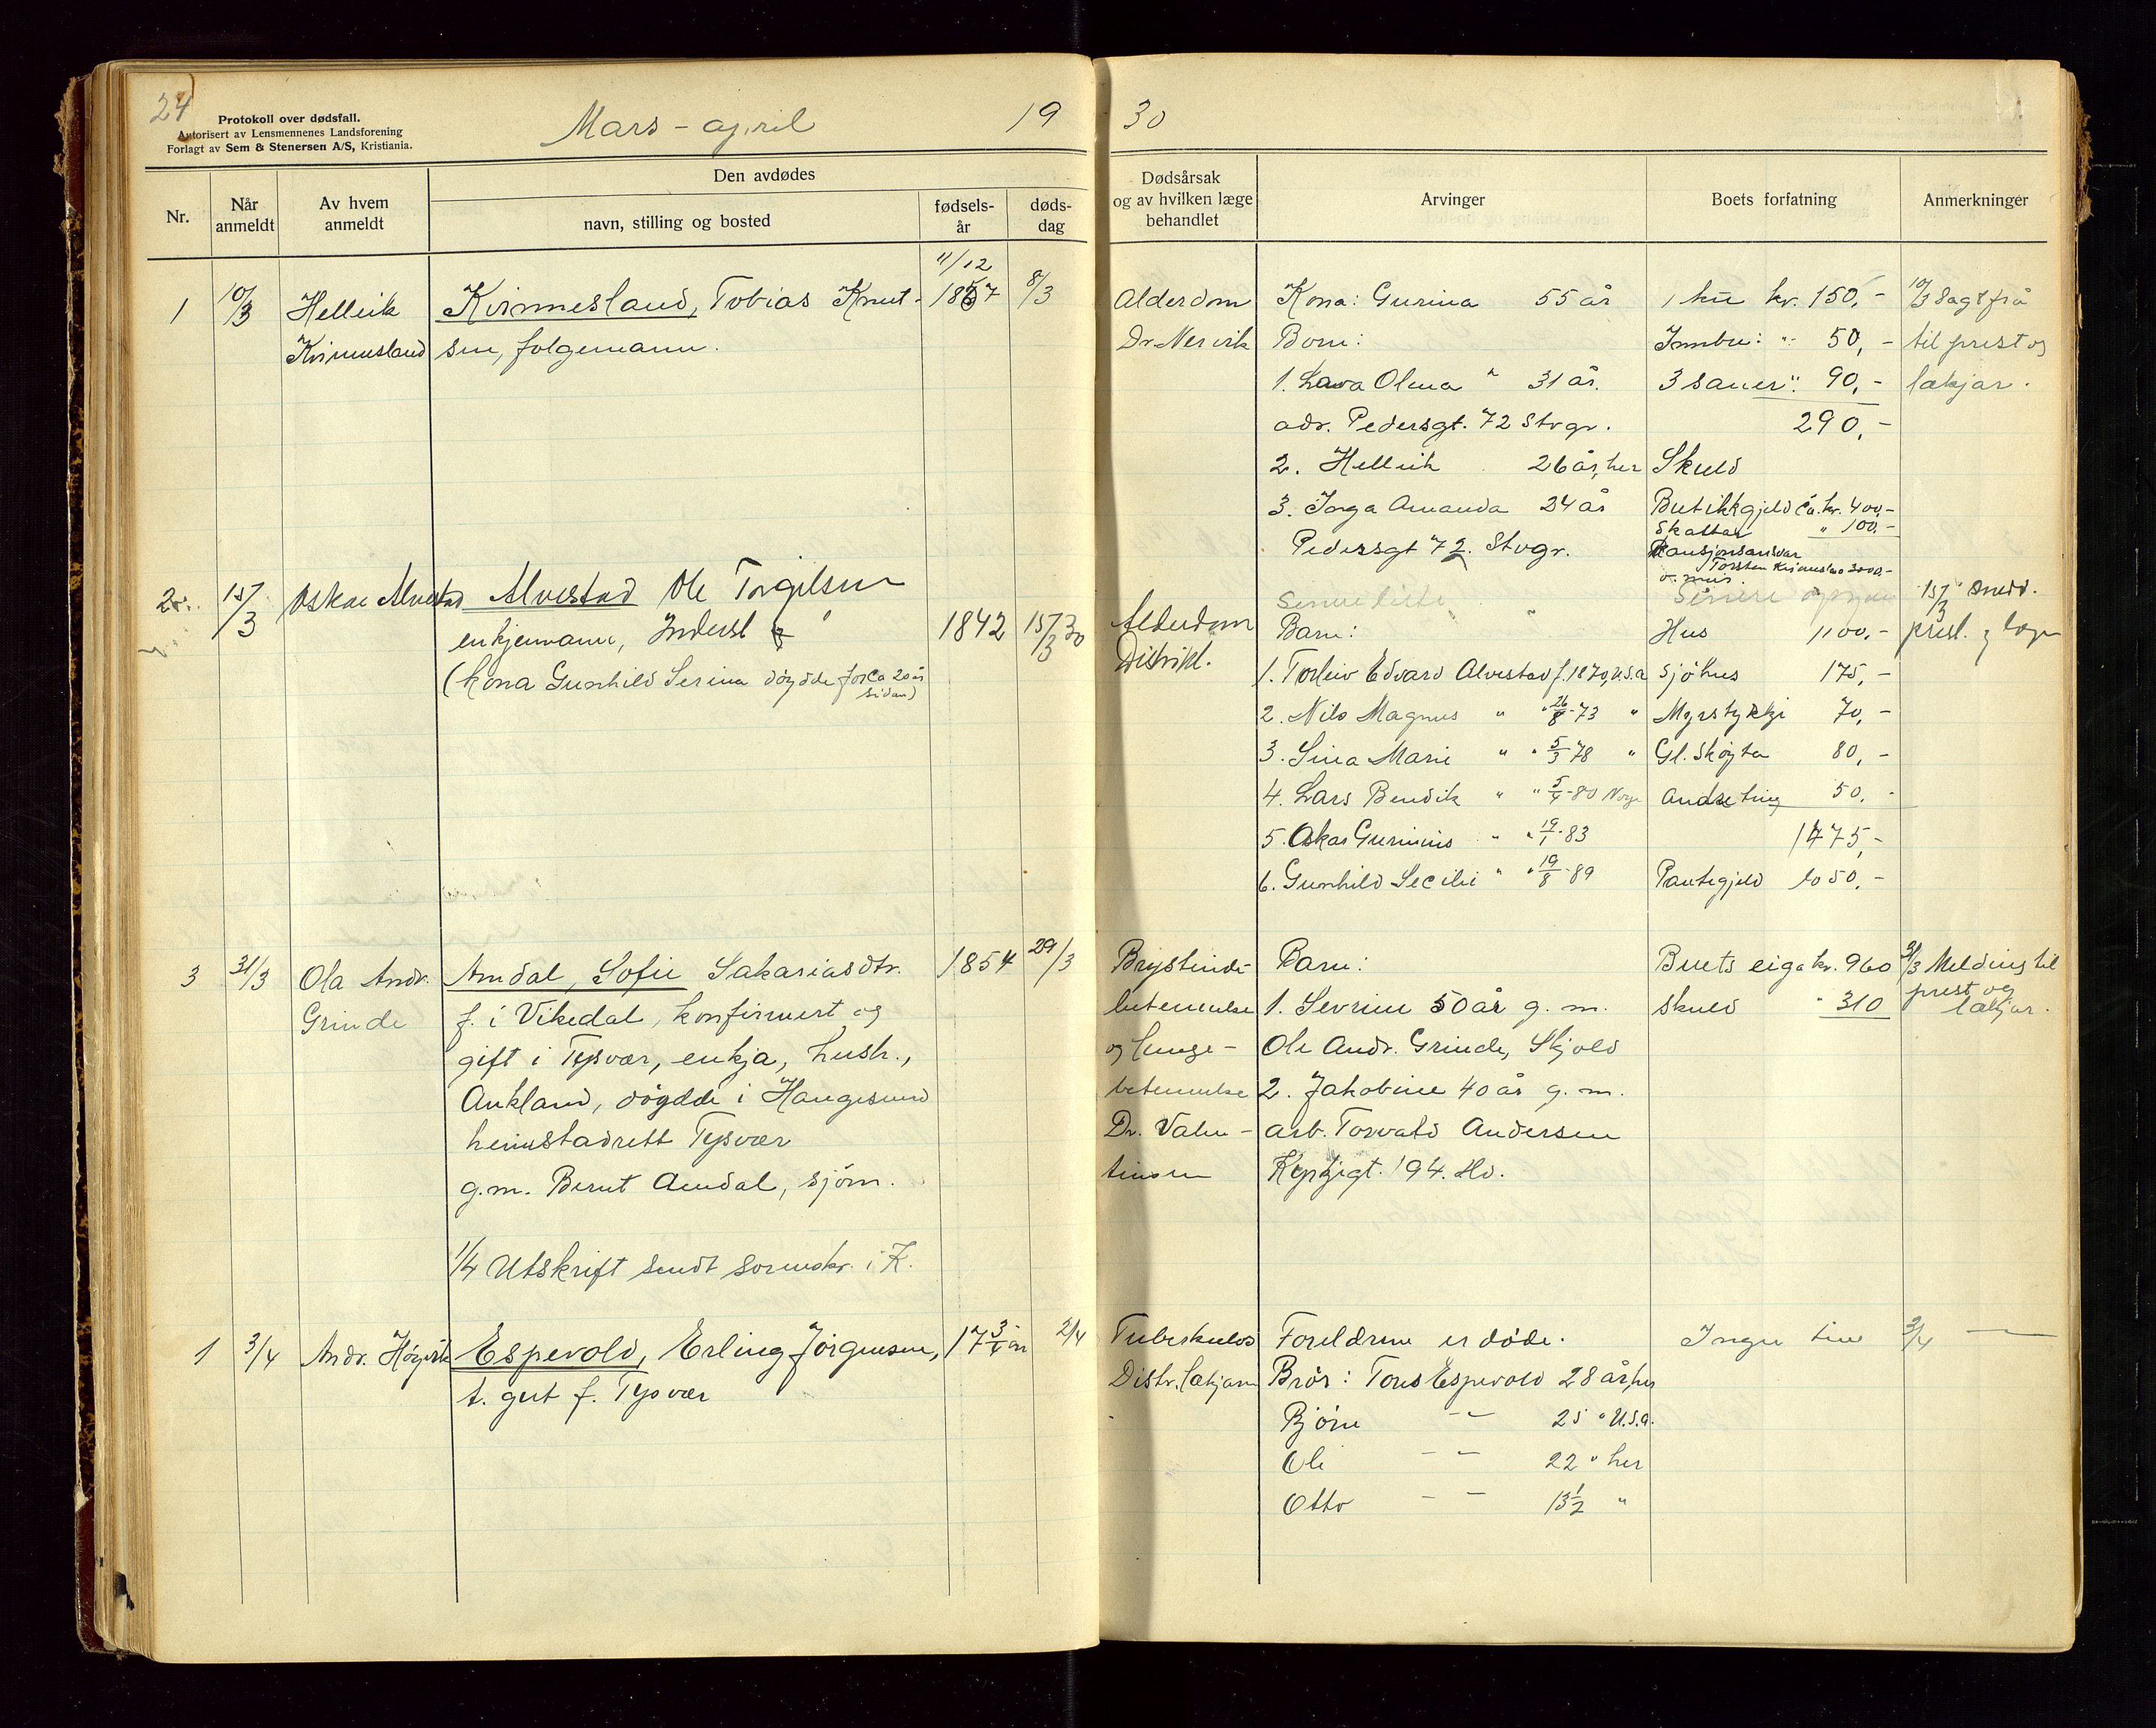 24
Protokoll over dødsfall.
Autorisert av Lensmennenes Landsforening
Forlagt av Sem & Stenersen A/S, Kristiania.
Mars - april 19 30
Nr.
Når anmeldt
Av hvem anmeldt
Den avdødes
navn, stilling og bosted
fødsels-år
døds-dag
Dødsårsak og av hvilken læge behandlet
Arvinger
Boets forfatning
Anmerkninger
1 10/3 Hellvik Kvinnesland, Tobias Knut- 11/12 1857 8/3
Kvinnesland sen, folgemann.
Alderdom
Dr. Nervik
Kona: Gurina 55 år
Born:
1. Lava Olena " 31 år.
adr. Pedersgt. 72 Stvgr.
2. Hellvik 26 år, her
3. Inga Amanda 24 år
Pedersgt 72. Stvgr.
1 ku kr. 150,-
Innbu: " 50,-
3 sauer " 90,-
290,-
Skuld
Butikkgjeld ca. kr. 400,-
Skattar " 100,-
Kausjonsansvar
Torsten Kvinnesland 3000,-
10/3 sagt frå
til prest og
lækjar.
2. 15/3 Oskar Alvestad Alvestad Ole Torgilsen
enkjemann, Indresl 1842 15/3 30
(kona Gunhild Serina døydde for ca 20 år
sidan)
Alderdom
Distrikl.
Senere liste
Barn:
1. Torleiv Edvard Alvestad f. 1870, U.S.a
2. Nils Magnus " " 26/8-73 "
3. Sina Marie " " 5/3 78 "
4. Lars Bendik " " 5/4-80 Norge
5. Oskar Gurinius " " 19/1-83
6. Gunhild Secilie " " 19/8-89
Senere
Hus 1100,-
Sjøhus 175,-
Myrstykkje 70,-
Gl. Skøyta 80,-
Andre ting 50,-
1475,-
Pantegjeld 1050,-
15/3 medd.
prest. og læge
3 31/3 Ola Andr. Amdal, Sofie Sakariasdtr. 1854 29/3
Grinde f. i Vikedal, konfirmert og
gift i Tysvær, enkja, hush.,
Aukland, døydde i Haugesund
heimstadrett Tysvær
g.m. Berut Amdal, sjøm.
1/4 Utskrift sendt sorenskr. i K.
Brysthinde-
betennelse
og lunge-
betennelse
Dr. Valen-
tinsen
Barn:
1. Sevrine 50 år g. m.
Ole Andr. Grinde, Skjold
2. Jakobine 40 år g. m.
arb. Torvald Andersen
194. Hd.
Buets eiga kr. 960
skuld " 310
31/3 Melding til
prest og
lækjar.
1 3/4 Andr. Høgvik Espevold, Erling Jørgensen, 17 3/4 år 2/4
t. gut f. Tysvær
Tuberkulos
Distr. lækjaren
Foreldrene er døde.
Brør: Tores Espevold 28 år, her
Bjørn - " - 25 " U.S.a.
Ole - " - 22 " her
Otto - " - 13 1/2 "
Ingen ting
3/4 —